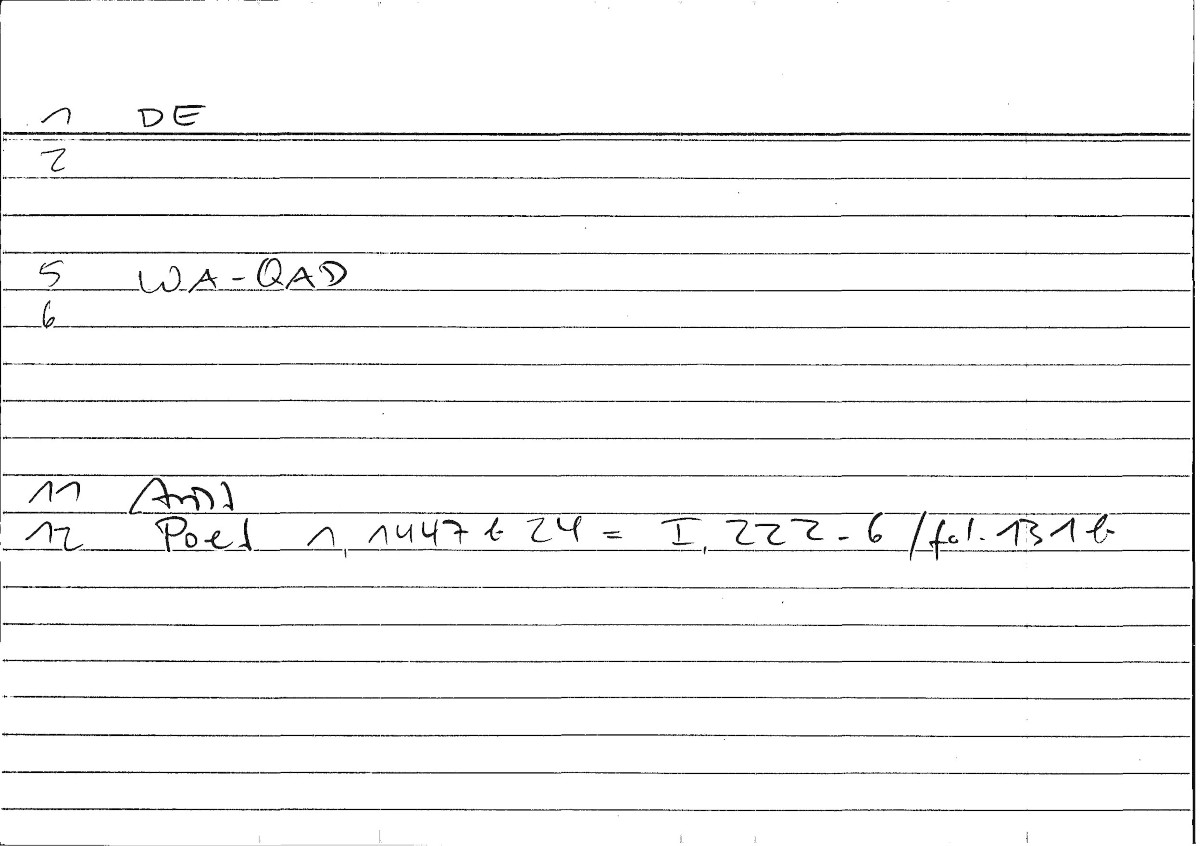 1 DE
2
5 WA-QAD
6
11
12 Poet 1, 1447 b 24 = I, 222-6 / fol. 131 b